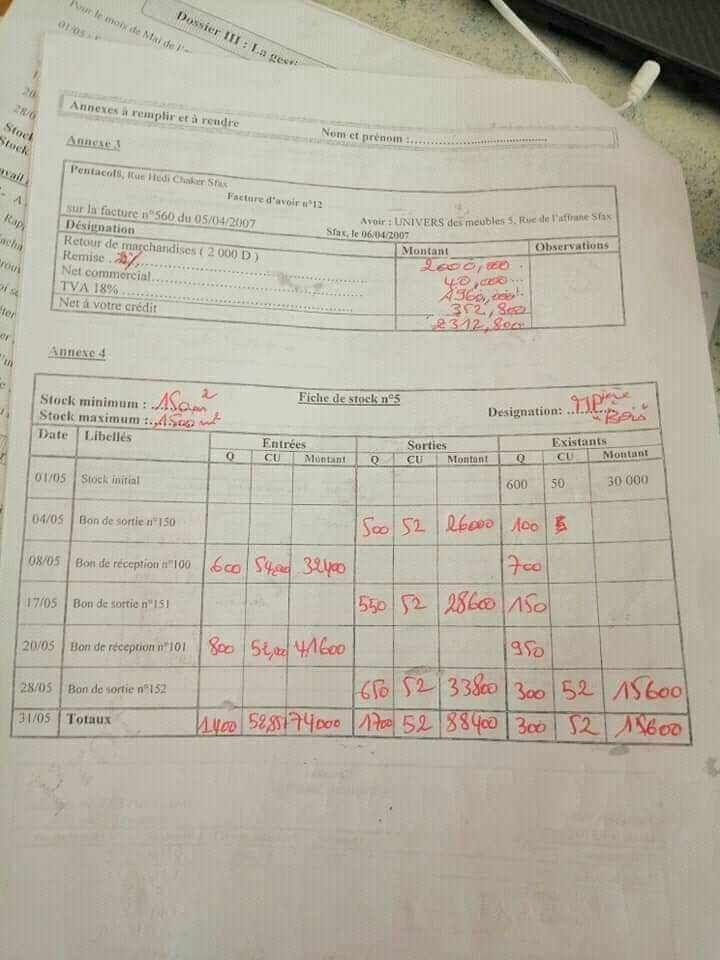 Dossier III : La gest
Pour le mois de Mai de l'
01/05 :
28/0
Stoc
Stock
Annexes à remplir et à rendre
Nom et prénom :
Annexe 3
Pentacol8, Rue Hédi Chaker Sfax
Facture d'avoir n°12
sur la facture n°560 du 05/04/2007
Avoir : UNIVERS des meubles 5, Rue de l'affrane Sfax
Sfax, le 06/04/2007
Désignation Montant Observations
Retour de marchandises ( 2 000 D ) 2000,000
Remise 2% 40,000
Net commercial 1960,000
TVA 18% 352,800
Net à votre crédit 2312,800
Annexe 4
Fiche de stock n°5
Stock minimum : 150 m²
Stock maximum : 1500 m²
Designation: "Bois"
Date Libellés Entrées Sorties Existants
Q CU Montant Q CU Montant Q CU Montant
01/05 Stock initial 600 50 30 000
04/05 Bon de sortie n°150 500 52 26000 100
08/05 Bon de réception n°100 600 54,000 32400 700
17/05 Bon de sortie n°151 550 52 28600 150
20/05 Bon de réception n°101 800 52,000 41600 950
28/05 Bon de sortie n°152 650 52 33800 300 52 15600
31/05 Totaux 1400 52,857 74000 1700 52 88400 300 52 15600